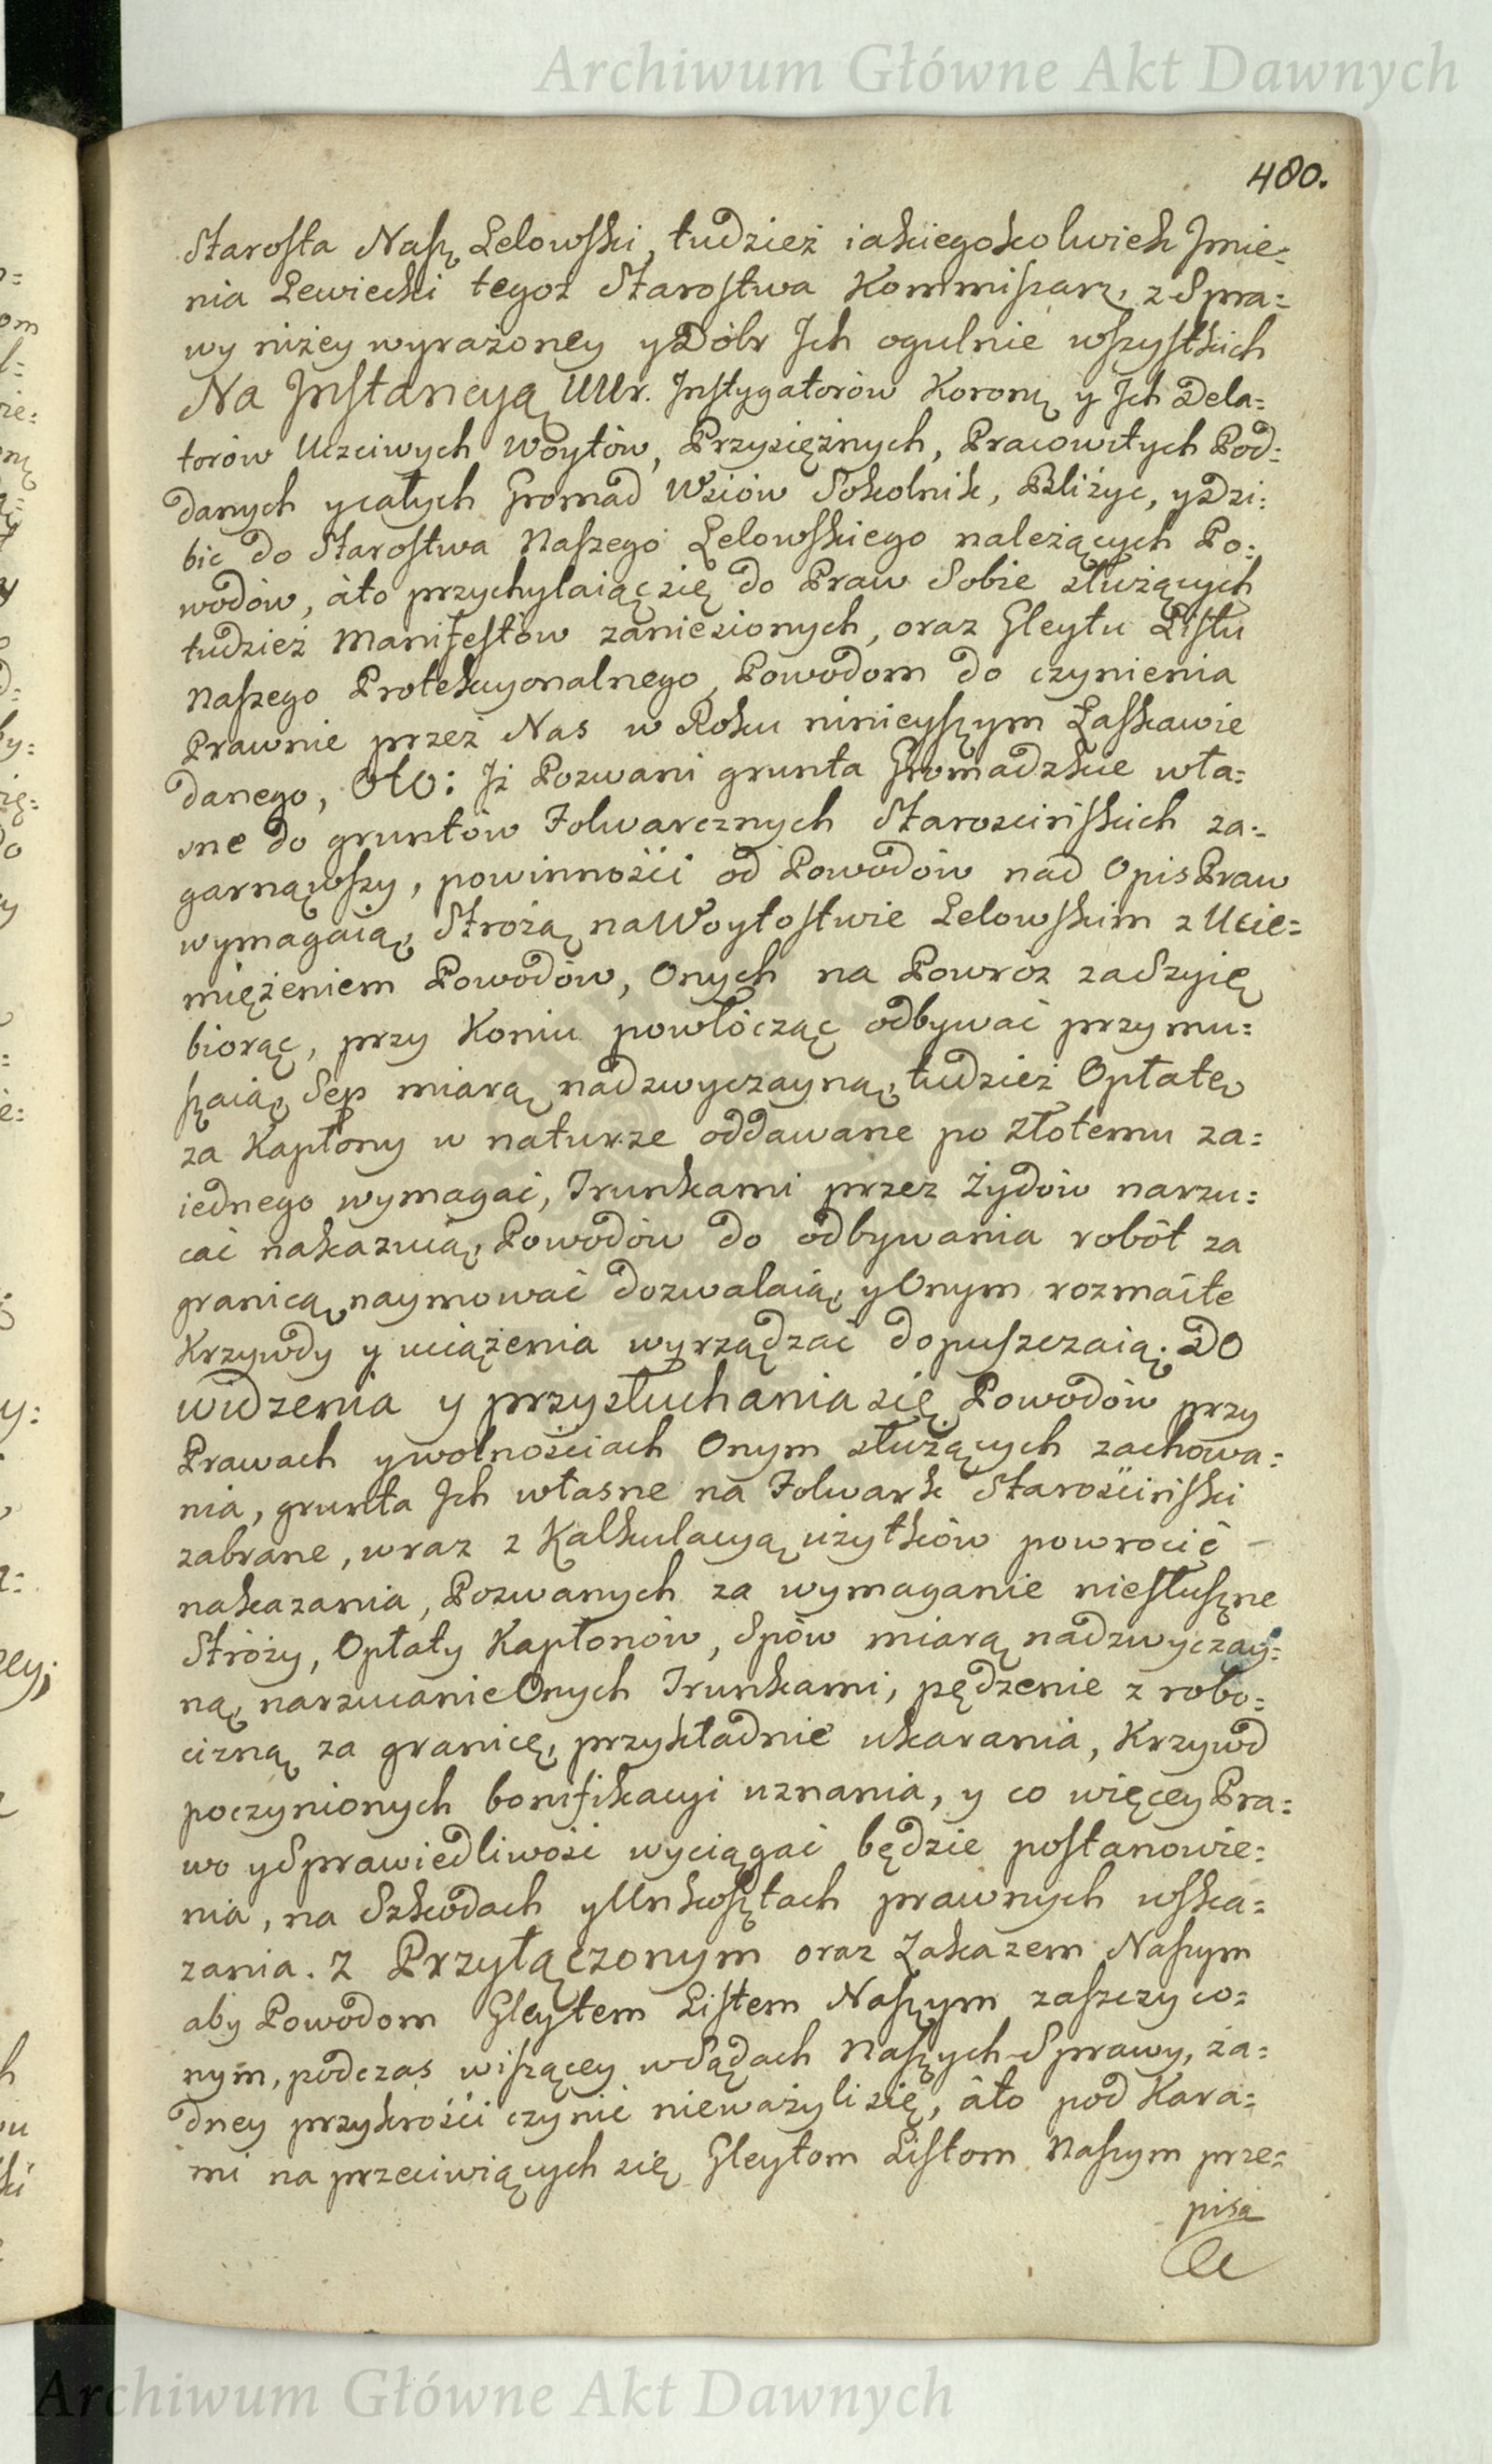 Archiwum Główne Akt Dawnych
480.
Starosta Nasz Lelowski, tudzież iakiegokolwiek Jmie=
nia Lewiecki tegoż Starostwa Kommissarz, z Spra=
wy niżey wyrażoney y Dóbr Jch ogulnie wszystkich
Na Jnstancyą UUr. Jnstygatorów Koronn. y Jch Dela=
torów Uczciwych Woytów, Przysiężnych, Pracowitych Pod=
danych y całych Gromad Wsiów Sokolnik, Bliżyc, y Dzi=
bic do Starostwa Naszego Lelowskiego należących Po=
wodów, áto przychylaiąc się do Praw Sobie służących
tudzież Manifestów zaniesionych, oraz Gleytu Listu
Naszego Protekcyonalnego, Powodom do czynienia
Prawnie przez Nas w Roku ninieyszym Łaskawie
danego, Oto: Jż Pozwani grunta Gromadzkie wła=
sne do gruntów Folwarcznych Starościńskich za=
garnąwszy, powinności od Powodów nad Opis Praw
wymagaią, Strożą na Woytostwie Lelowskim z Ucie=
miężeniem Powodów, Onych na Powroz za Szyię
biorąc, przy Koniu powłócząc odbywać przymu=
szaią, Sep miarą nadzwyczayną, tudzież Opłatę
za Kapłony w naturze oddawane po złotemu za=
iednego wymagać, Trunkami przez Żydów narzu=
cać nakazuią, Powodów do odbywania robót za
granicą naymować dozwalaią, y Onym rozmaite
Krzywdy y uciążenia wyrządzać dopuszczaią. Do
widzenia y przysłuchania się Powodów przy
Prawach y wolnościach Onym służących zachowa=
nia, grunta Jch własne na Folwark Starościński
zabrane, wraz z Kalkulacyą użytków powrocić –
nakazania, Pozwanych za wymaganie niesłuszne
Stróży, Opłaty Kapłonów, Spów miarą nadzwyczay=
ną, narzucanie Onych Trunkami, pędzenie z robo=
cizną za granicę, przykładnie ukarania, Krzywd
poczynionych bonifikacyi uznania, y co więcey Pra=
wo y Sprawiedliwość wyciągać będzie postanowie=
nia, na Szkodach y Unkosztach prawnych wska=
zania. Z Przyłączonym oraz Zakazem Naszym
aby Powodom Gleytem Listem Naszym zaszczyco=
nym, podczas wiszącey w Sądach Naszych Sprawy, ża=
dney przykrości czynić nieważyli się, áto pod Kara=
mi na przeciwiących się Gleytom Listom Naszym prze=
pisa
Archiwum Główne Akt Dawnych